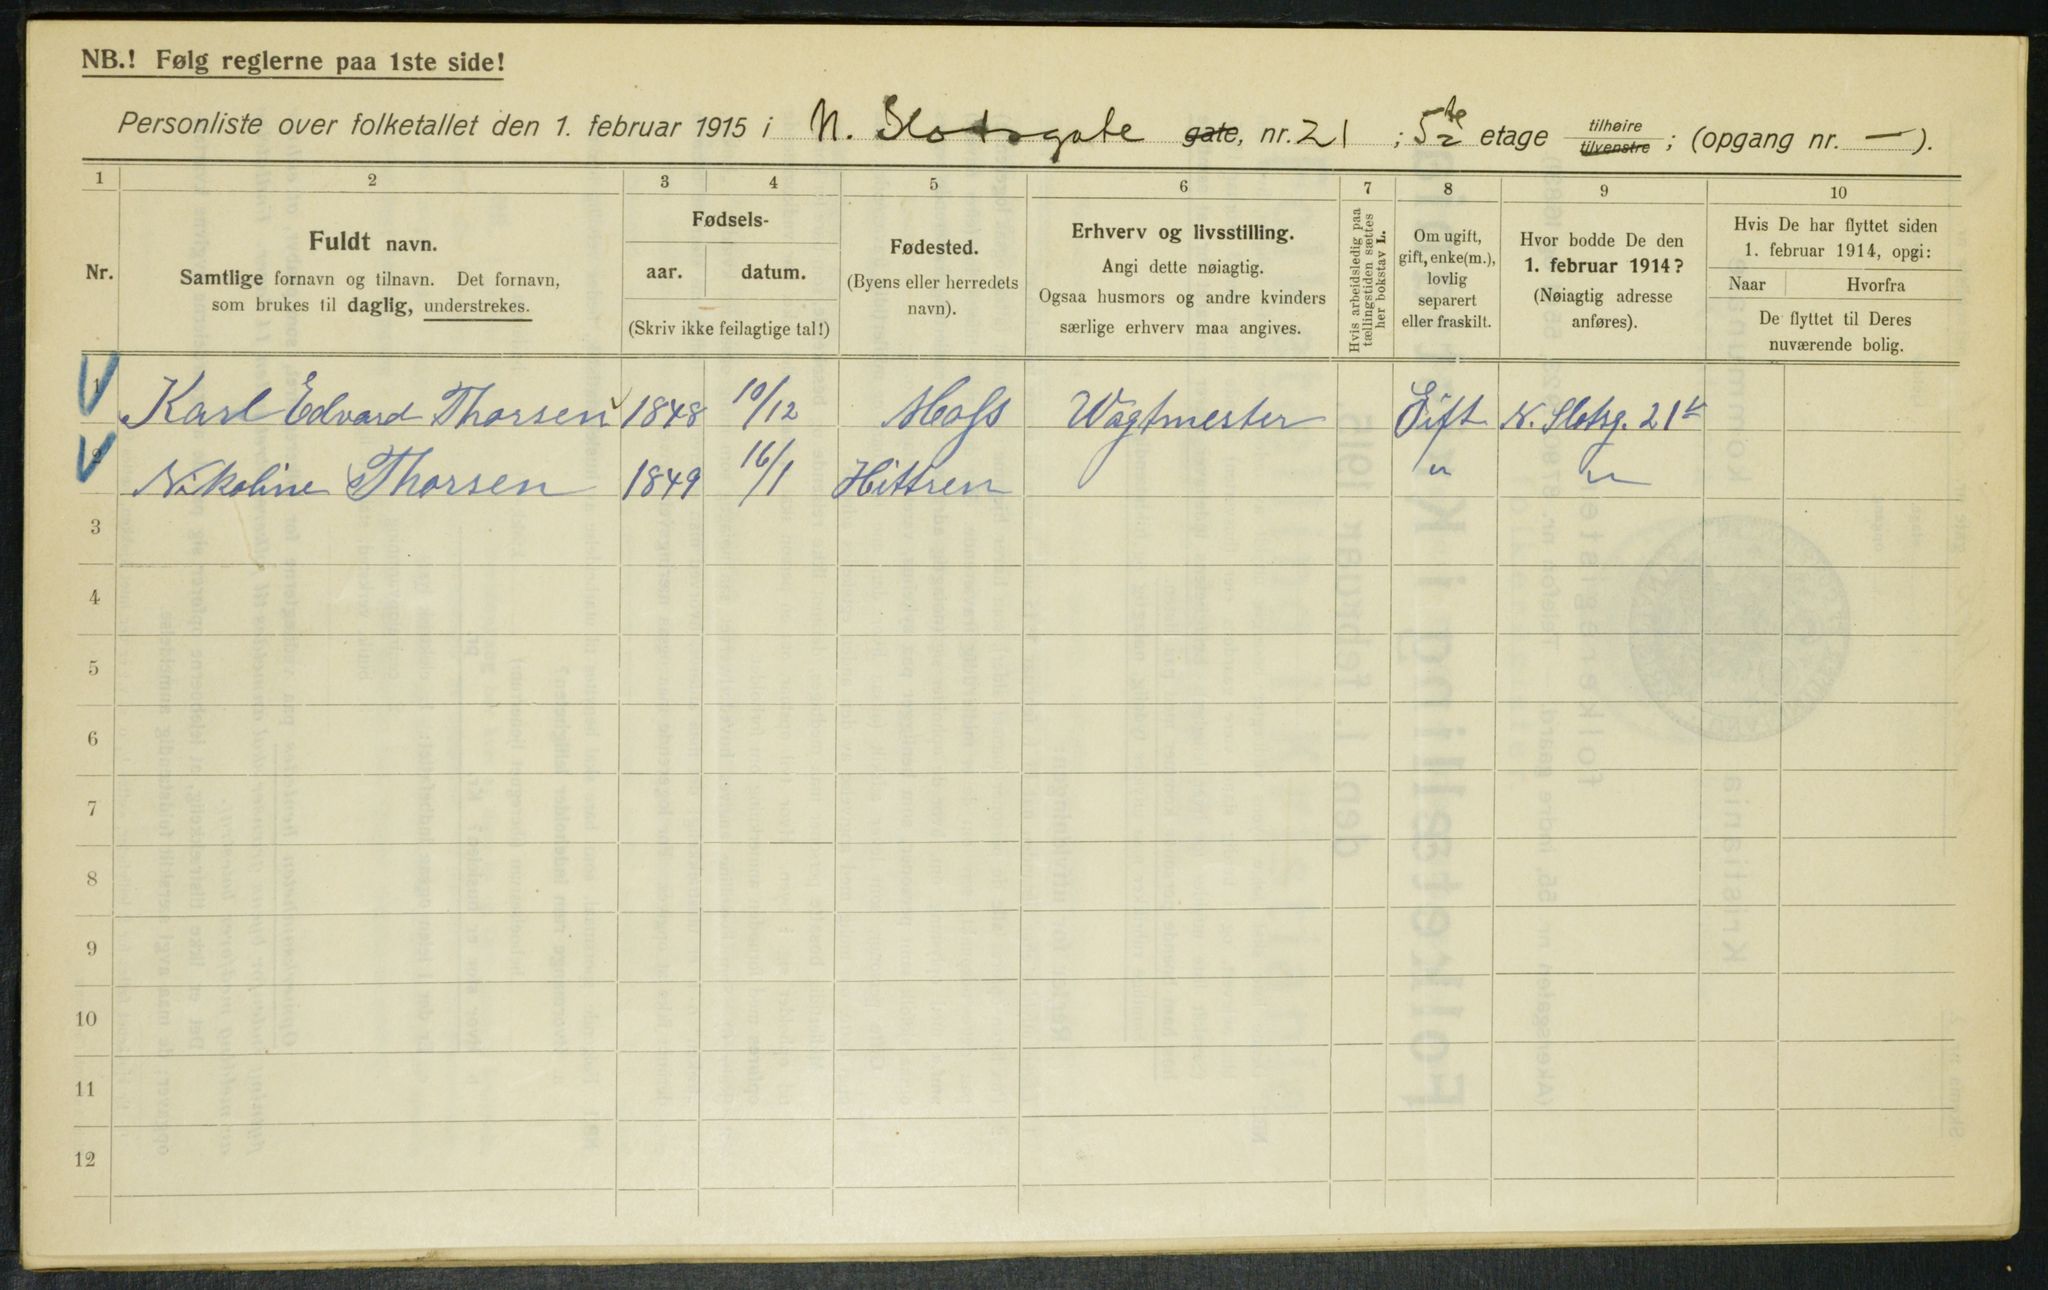 NB.! Følg reglerne paa 1ste side!
Personliste over folketallet den 1. februar 1915 i N. Slotsgate gate, nr. 21 ; 5te etage tilhøire tilvenstre ; (opgang nr. — ).
1 2 3 4 5 6 7 8 9 10
Nr.
Fuldt navn.
Samtlige fornavn og tilnavn. Det fornavn,
som brukes til daglig, understrekes.
Fødsels-
aar. datum.
(Skriv ikke feilagtige tal!)
Fødested.
(Byens eller herredets
navn).
Erhverv og livsstilling.
Angi dette nøiagtig.
Ogsaa husmors og andre kvinders
særlige erhverv maa angives.
Hvis arbeidsledig paa
tællingstiden sættes
her bokstav L.
Om ugift,
gift, enke(m.),
lovlig
separert
eller fraskilt.
Hvor bodde De den
1. februar 1914?
(Nøiagtig adresse
anføres).
Hvis De har flyttet siden
1. februar 1914, opgi:
Naar Hvorfra
De flyttet til Deres
nuværende bolig.
1 Karl Edvard Thorsen 1848 10/12 Moss Vagtmester Gift N. Slotsg. 21
2 Nikoline Thorsen 1849 16/1 Hittren " "
3
4
5
6
7
8
9
10
11
12